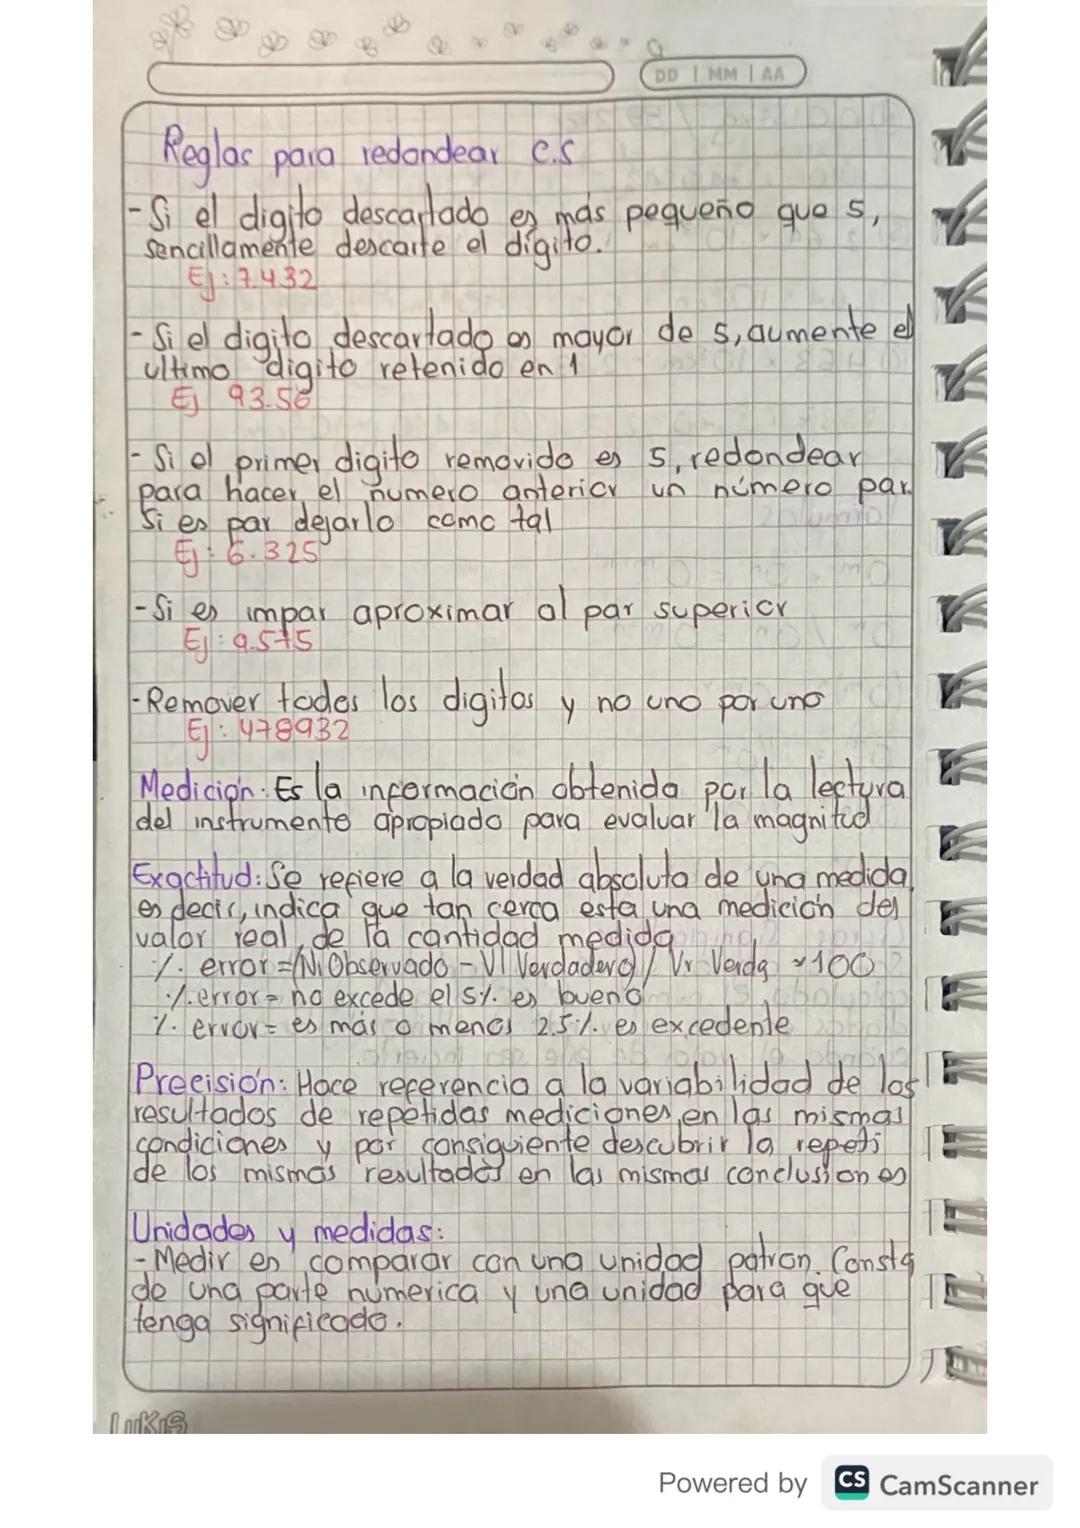 DD | MM | AA
Reglas para redondear c.s
- Si el digito descartado es más pequeño que 5,
sencillamente descarte el dígito.
Ej: 7.432
- Si el digito descartado es mayor de 5, aumente el
ultimo digito retenido en 1
Ej 93.56
- Si el primer digito removido es 5, redondear
para hacer el numero anterior un número par.
Si es par dejarlo como tal
Ej: 6.325
- Si es impar aproximar al par superior
Ej: 9.575
- Remover todos los digitos y no uno por uno
Ej: 478932
Medición: Es la información obtenida por la lectura
del instrumento apropiado para evaluar la magnitud
Exactitud: Se refiere a la verdad absoluta de una medida,
es decir, indica que tan cerca esta una medición del
valor real, de la cantidad medida
%. error = (Observado - Vl Verdadero) / Vr Verda × 100
%. error = no excede el 5%. es bueno
%. error = es más o menos 2.5%. es excedente
Precisión: Hace referencia a la variabilidad de los
resultados de repetidas mediciones, en las mismas
condiciones y por consiguiente descubrir la repeti
de los mismos resultados en las mismas conclusiones
Unidades y medidas:
- Medir es comparar con una unidad patron. Consta
de una parte numerica y una unidad para que
tenga significado.
LUKIS
Powered by CS CamScanner